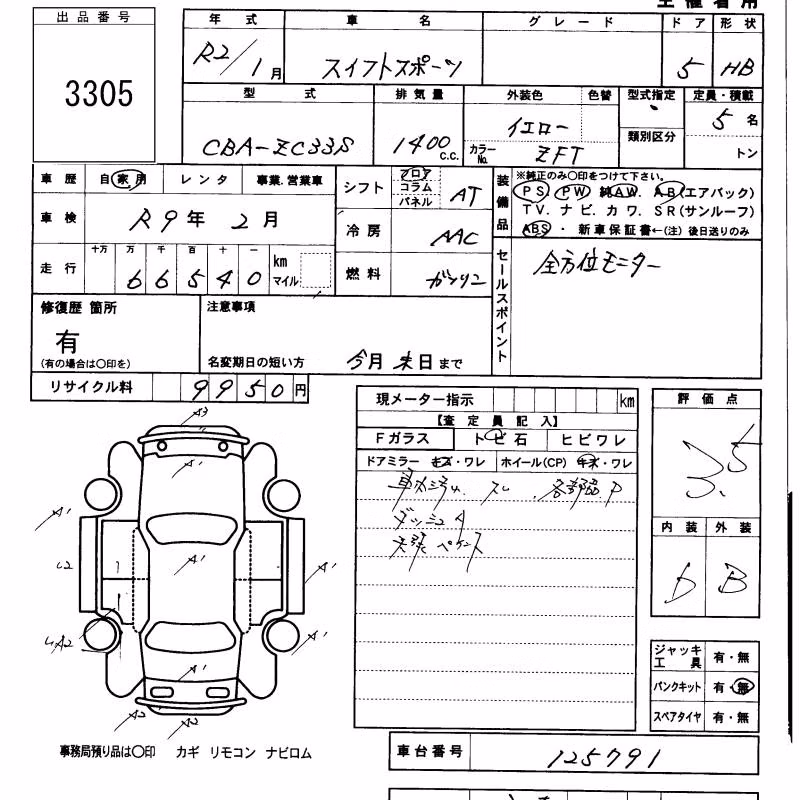 出品番号
3305
年式 車名 グレード ドア 形状
R2/1月 スイフトスポーツ 5 HB
型式 排気量 外装色 色替 型式指定 定員・積載
CBA-ZC33S 1400 c.c. イエロー カラーNo. ZFT 類別区分 5名 トン
車歴 自家用 レンタ 事業.営業車
車検 R9年 2月
走行 十万 万 千 百 十 一
66540 km マイル
シフト フロア コラム パネル AT
冷房 AAC
燃料 ガソリン
装備品
※純正のみ〇印をつけて下さい。
PS PW 純AW. AB(エアバック)
TV. ナビ. カワ. SR(サンルーフ)
ABS ・ 新車保証書←(注) 後日送りのみ
セールスポイント
全方位モニター
修復歴 箇所
有
(有の場合は〇印を)
注意事項
名変期日の短い方 今月末日まで
リサイクル料 9950円
現メーター指示 km
【査定員記入】
Fガラス トビ石 ヒビワレ
ドアミラー キズ・ワレ ホイール(CP) キズ・ワレ
ダッシュA
評価点
3.5
内装 外装
D B
ジャッキ工具 有・無
パンクキット 有・無
スペアタイヤ 有・無
A3
A'
A'
A'
A'
A'
A'
A2
A2
事務局預り品は〇印 カギ リモコン ナビロム
車台番号 125791